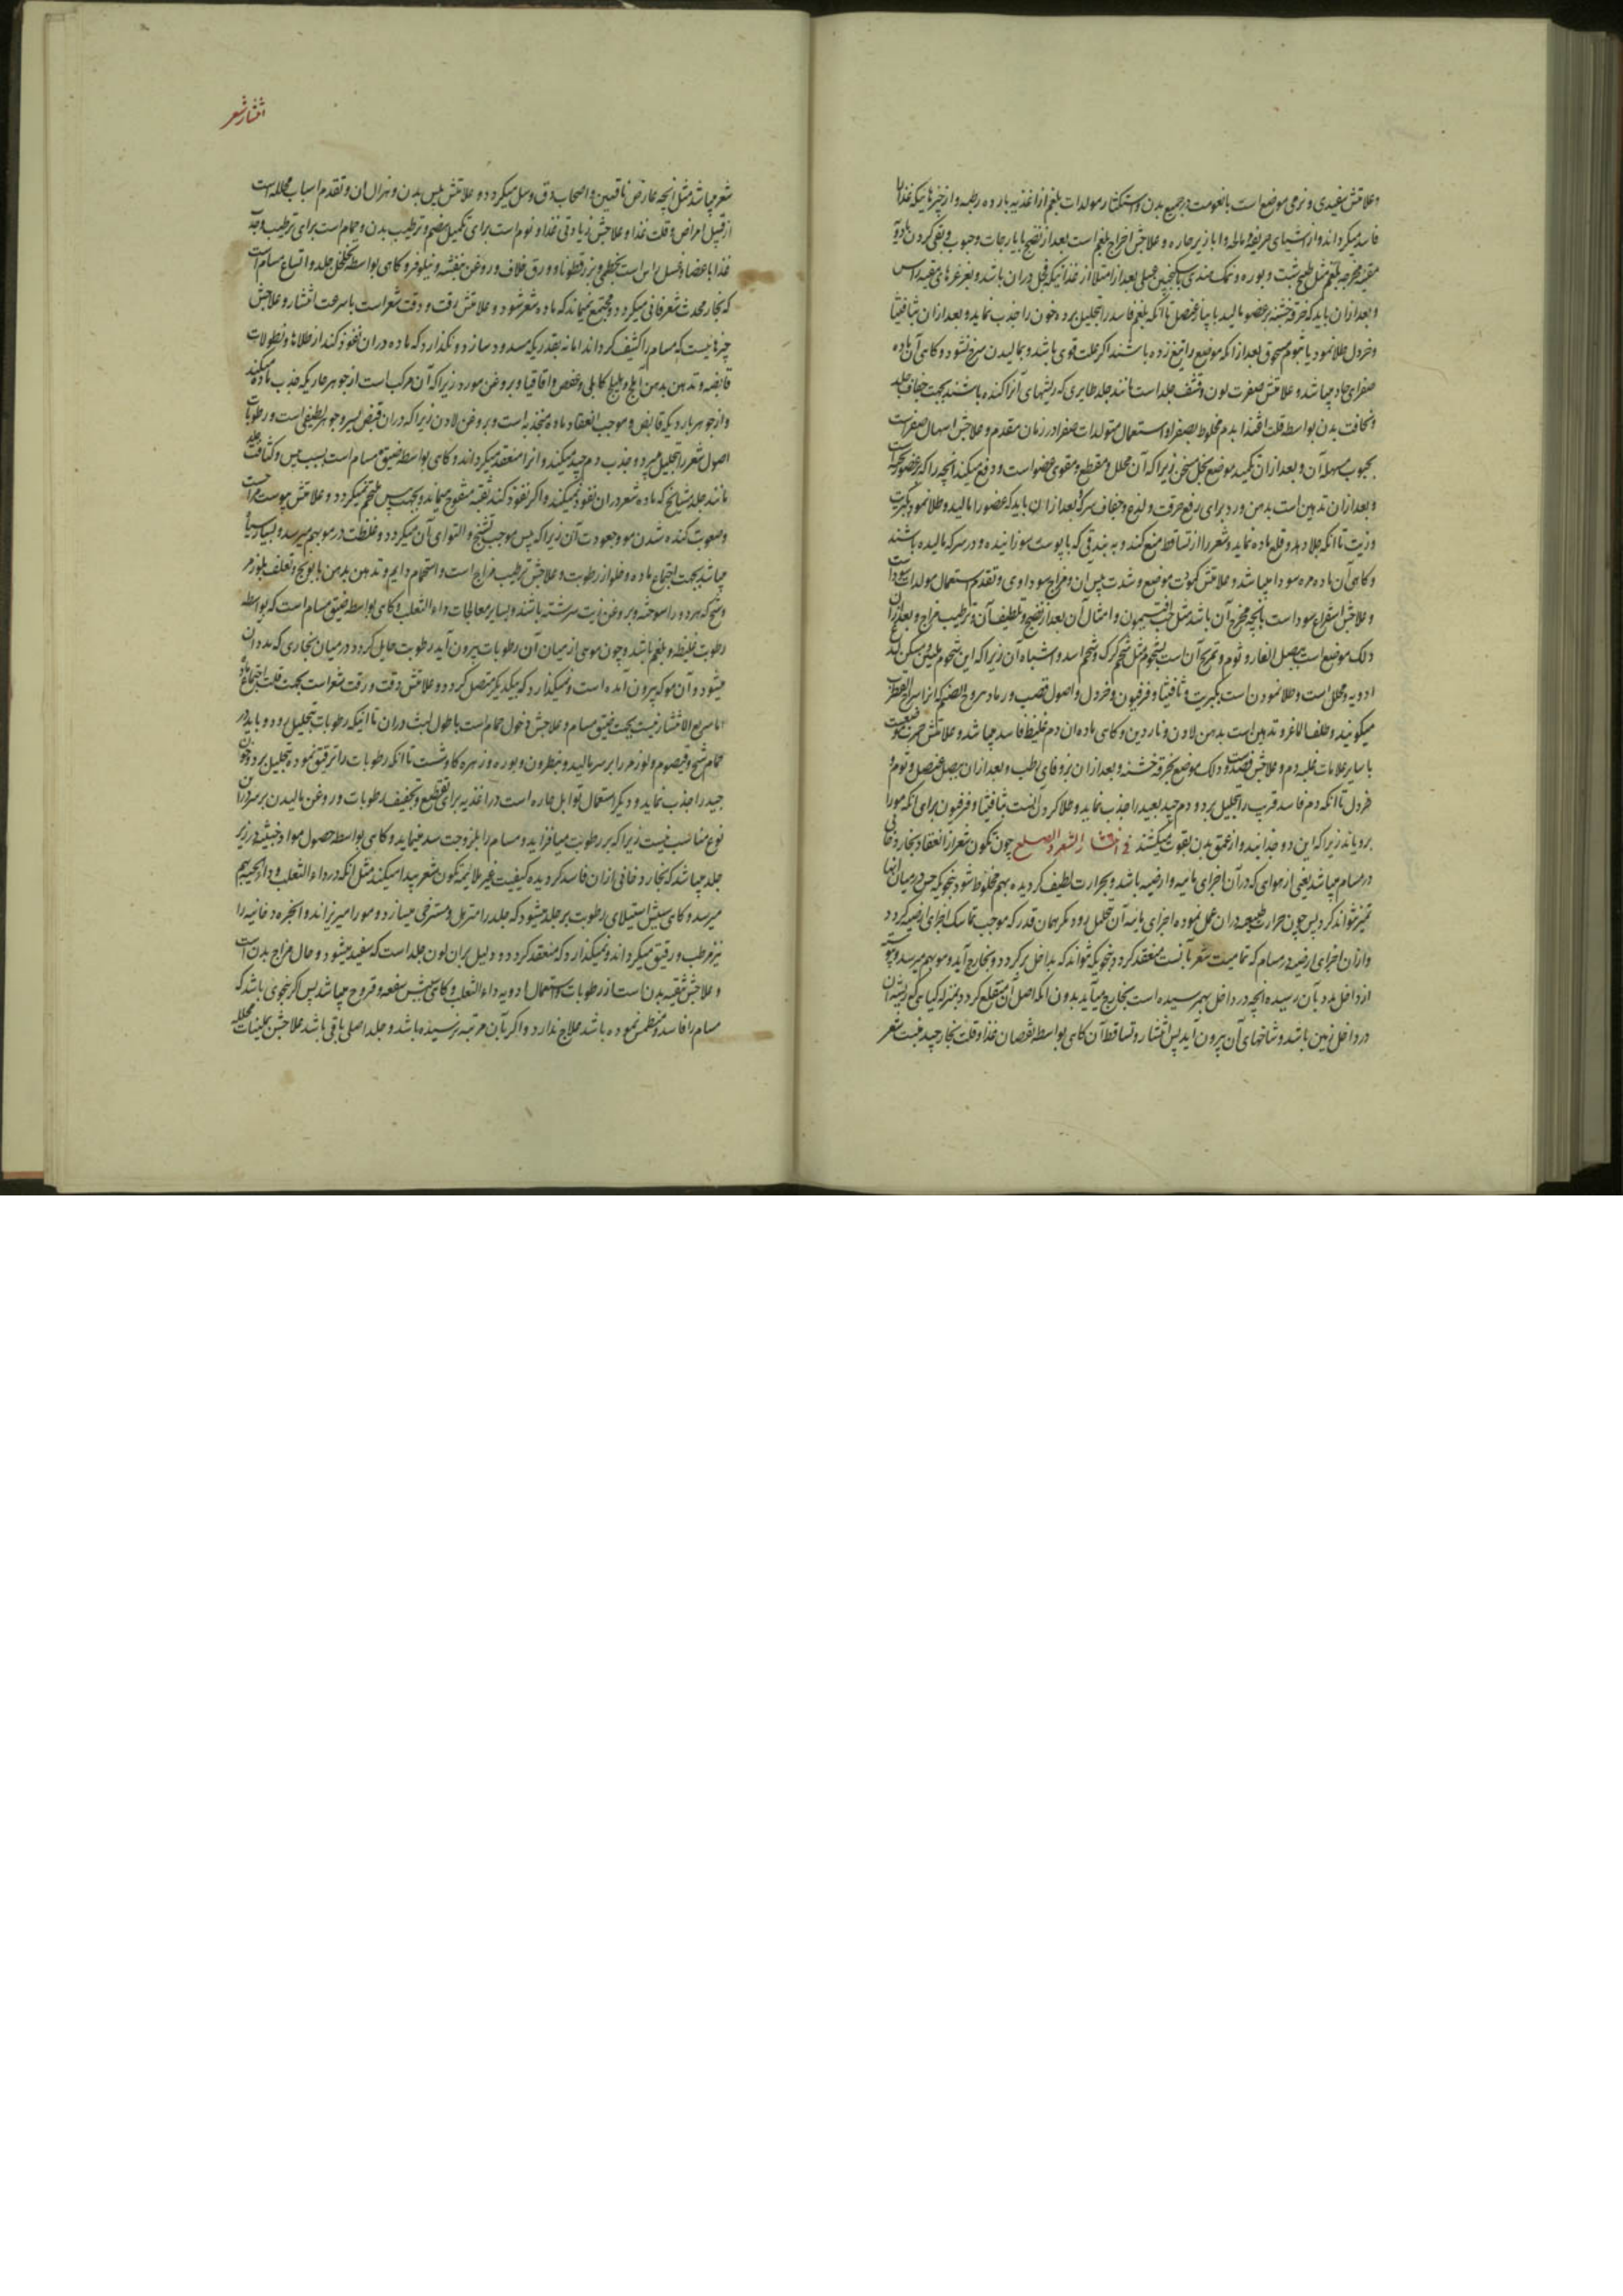 وعلامتش سفیدی و نرمی موضع است بانعومت در جمیع بدن و استکثار مولدات بلغم از اغذیه بارده رطبه و از چیزهائیکه غذا را
فاسد میکرداند و از اشیای حریفه و مالحه و ابازیر حاره و علاجش اخراج بلغم است بعد از نضج بایارجات و حبوب و قی کردن بادویه
مقیئه مخرجه بلغم مثل طبیخ شبت و بوره و نمک هندی با سکنجبین عسلی بعد از امتلا از غذائیکه فجل در ان باشد و بغرغرهای منقیه راس
و بعد ازان باید که خرقه خشنه بر عضو مالید یا پیاز عنصل تا آنکه بلغم فاسد را تحلیل برده خون را جذب نماید و بعد ازان بثافثیا
و خردل طلا نمود یا بثوم مسحوق بعد از انکه موضع را تیغ زده باشند اکر علت قوی باشد و بمالیدن سرخ نشود و کاهی آن ماده
صفرای حاد میباشد و علامتش صفرت لون و قشف جلد است مانند جلد طایری که ریشهای آنرا کنده باشند بجهت جفاف جلد
و نحافت بدن بواسطه قلت اغتذا بدم مخلوط بصفرا و استعمال متولدات صفرا در زمان مقدم و علاجش اسهال صفرا است
بحبوب مسهله آن و بعد ازان تکمید موضع بخل مسخن زیرا که آن محلل و مقطع و مقوی عضو است و دفع میکند انچه را که بر عضو
و بعد ازان تدهین است بدهن ورد برای رفع حرقت و لذع و جفاف سرکه و بعد ازان باید که عضو را مالید و طلا نمود بکبریت
و زیت تا آنکه جلا دهد و قلع ماده نماید و شعر را از تساقط منع کند و به بندقی که با پوست سوزانیده و در سرکه مالیده باشند
و کاهی آن ماده مره سودا میباشد و علامتش کمودت موضع و شدت یبس ان و مزاج سوداوی و تقدم استعمال مولدات سودا
و علاجش استفراغ سودا است بانچه مخرج آن باشد مثل حب افتیمون و امثال آن بعد از نضج و تلطیف آن و ترطیب مزاج و بعد ازان
دلک موضع است ببصل الفار و ثوم و تمریخ آن است بشحوم مثل شحم کرک و شحم اسد و اشباه آن زیرا که این شحوم ملین و مسکن لذع
ادویه و محلل است و طلا نمودن است بکبریت و ثافثیا و فرفیون و خردل و اصول قصب و رماد
میکویند و ظلف الماعز و تدهین است بدهن لادن و ناردین و کاهی ماده ان دم غلیظ فاسد میباشد و علامتش حمرت موضع
با سایر علامات غلبه دم و علاجش فصد است و دلک موضع بخرقه خشنه و بعد ازان بزوفای رطب و بعد ازان ببصل عنصل و ثوم و
خردل تا آنکه دم فاسد قریب را تحلیل برد و دم جید بعید را جذب نماید و طلا کردن است بثافثیا و فرفیون برای انکه مو را
برویاند زیرا که این دو جذابند و از عمق بدن بقوت میکشند فی انتشار الشعر و الصلع چون تکون شعر از انعقاد بخار دخانی
در مسام میباشد یعنی از هوای که در آن اجزای مائیه و ارضیه باشد و بحرارت لطیف کردیده بهم مخلوط شود بنحویکه حس در میان انها
تمیز نتواند کرد پس چون حرارت طبیعیه دران عمل نموده اجزای مائیه آن تحلیل رود مکر همان قدر که موجب تماسک اجزای ارضیه کردد
و ازان اجزای ارضیه در مسام که تمامیت شعر بآنست منعقد کردد بنحویکه نتواند که بداخل برکردد و بخارج آید و مو بهم میرسد و پیوسته
از داخل مدد بآن رسیده انچه در داخل بهم رسیده است بخارج میآید بدون انکه اصل آن منقلع کردد بمنزله کیاهی که ریشه آن
در داخل زمین باشد و شاخهای آن بیرون آید پس انتشار و تساقط آن کاهی بواسطه نقصان غذا و قلت بخار جید منبت شعر
انتشار شعر
شعر میباشد مثل انچه عارض ناقهین و اصحاب دق و سل میکردد و علامتش یبس بدن و هزال ان و تقدم اسباب محلله است
از قبیل امراض و قلت غذا و علاجش زیادتی غذا و نوم است برای تکمیل هضم و ترطیب بدن و حمام است برای ترطیب و جذب
غذا باعضا و غسل راس است بخطمی و بزرقطونا و ورق خلاف و روغن بنفشه و نیلوفر و کاهی بواسطه تخلخل جلد و اتساع مسام است
که بخار محدث شعر فانی میکردد و مجتمع نمیماند که ماده شعر شود و علامتش رقت و دقت شعر است با سرعت انتشار و علاجش
چیزهائیست که مسام را کثیف کرداند اما نه بقدریکه مسدود سازد و نکذارد که ماده دران نفوذ کند از طلاها و نطولات
قابضه و تدهین بدهن آملج و هلیلج کابلی و عفص و اقاقیا و بروغن مورد زیرا که آن مرکب است از جوهر حاریکه جذب ماده میکند
و از جوهر باردیکه قابض و موجب انعقاد ماده منجذبه است و بروغن لادن زیرا که دران قبض یسیر و جوهر لطیفی است و رطوبات
اصول شعر را تحلیل میبرد و جذب دم جید میکند و انرا منعقد میکرداند و کاهی بواسطه ضیق مسام است بسبب یبس و کثافت جلد
مانند جلد مشایخ که ماده شعر دران نفوذ نمیکند و اکر نفوذ کند ثقبه مفتوح میماند و بجهت یبس ملتحم نمیکردد و علامتش یبوست مزاج است
و صعوبت کنده شدن مو و جعودت آن زیرا که یبس موجب تشنج و التوای آن میکردد و غلظت در مو بهم میرسد و بسیار سیاه
میباشد بجهت اجتماع ماده و خلو از رطوبت و علاجش ترطیب مزاج است و استحمام دایم و تدهین بدهن بابونج و تغلف بلوز مر
و شیح که هر دو را سوخته و بروغن زیت سرشته باشند و بسایر معالجات داء الثعلب و کاهی بواسطه ضیق مسام است که بواسطه
رطوبت غلیظه و بلغم باشد و چون موسی از میان آن رطوبات بیرون آید رطوبت حایل کردد در میان بخاری که مدد ان
میشود و آن مو که بیرون آمده است و نمیکذارد که بیکدیکر متصل کردد و علامتش دقت و رقت شعر است بجهت قلت اجتماع ماده
اما سریع الانتشار نیست بجهت ضیق مسام و علاجش دخول حمام است با طول لبث دران تا اینکه رطوبات بتحلیل رود و باید در
حمام شیح و قیصوم و لوز مر را بر سر مالید و نطرون و بوره و زهره کاو شست تا آنکه رطوبات را ترقیق نموده تحلیل برد و خون
جید را جذب نماید و دیکر استعمال توابل حاره است در اغذیه برای تقطیع و تجفیف رطوبات و روغن مالیدن بر سر درین
نوع مناسب نیست زیرا که بر رطوبت میافزاید و مسام را بلزوجت سد مینماید و کاهی بواسطه حصول مواد خبیثه در زیر
جلد میباشد که بخار دخانی ازان فاسد کردیده کیفیت غیر ملایمه تکون شعر پیدا میکند مثل انکه در داء الثعلب و داء الحیه بهم
میرسد و کاهی سببش استیلای رطوبت بر جلد میشود که جلد را مترهل و مسترخی میسازد و مو را میریزاند و ابخره دخانیه را
نیز مرطب و رقیق میکرداند و نمیکذارد که منعقد کردد و دلیل بران لون جلد است که سفید میشود و حال مزاج بدن است
و علاجش تنقیه بدن است از رطوبات و استعمال ادویه داء الثعلب و کاهی سببش سعفه و قروح میباشد پس اکر بنحوی باشد که
مسام را فاسد و منطمس نموده باشد علاج ندارد و اکر بآن مرتبه نرسیده باشد و جلد اصلی باقی باشد علاجش بملینات محلله